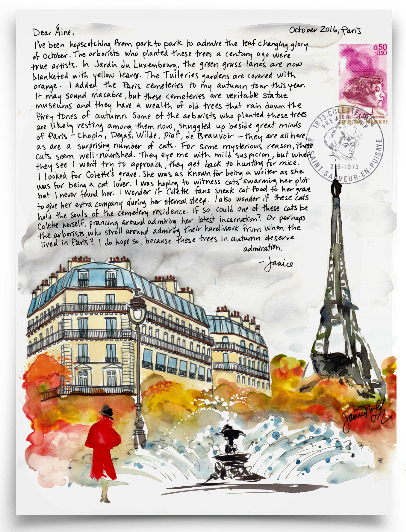 Dear Áine,
October 2016, Paris
I've been hopscotching from park to park to admire the leaf changing glory
of October. The arborists who planted these trees a century ago were
true artists. In Jardin du Luxembourg, the green grass lanes are now
blanketed with yellow leaves. The Tuileries gardens are covered with
orange. I added the Paris cemeteries to my autumn tour this year.
It may sound macabre, but these cemeteries are veritable statue
museums and they have a wealth of old trees that rain down the
firey tones of autumn. Some of the arborists who planted these trees
are likely resting among them now, snuggled up beside great minds
of Paris - Chopin, Degas, Wilde, Piaf, de Beauvoir - they are all here,
as are a surprising number of cats. For some mysterious reason, these
cats seem well-nourished. They eye me with mild suspicion, but when
they see I want to approach, they get back to hunting for mice.
I looked for Colette's grave. She was as known for being a writer as she
was for being a cat lover. I was hoping to witness cats swarming her plot
but I never found her. I wonder if Colette fans sneak cat food to her grave
to give her extra company during her eternal sleep. I also wonder if these cats
hold the souls of the cemetery residence. If so could one of these cats be
Colette herself, prancing around admiring her latest incarnation? Or perhaps
the arborists who stroll around admiring their hardwork from when they
lived in Paris? I do hope so, because these trees in autumn deserve
admiration.
- Janice
0,50
ST SAUVEUR EN PUISAYE